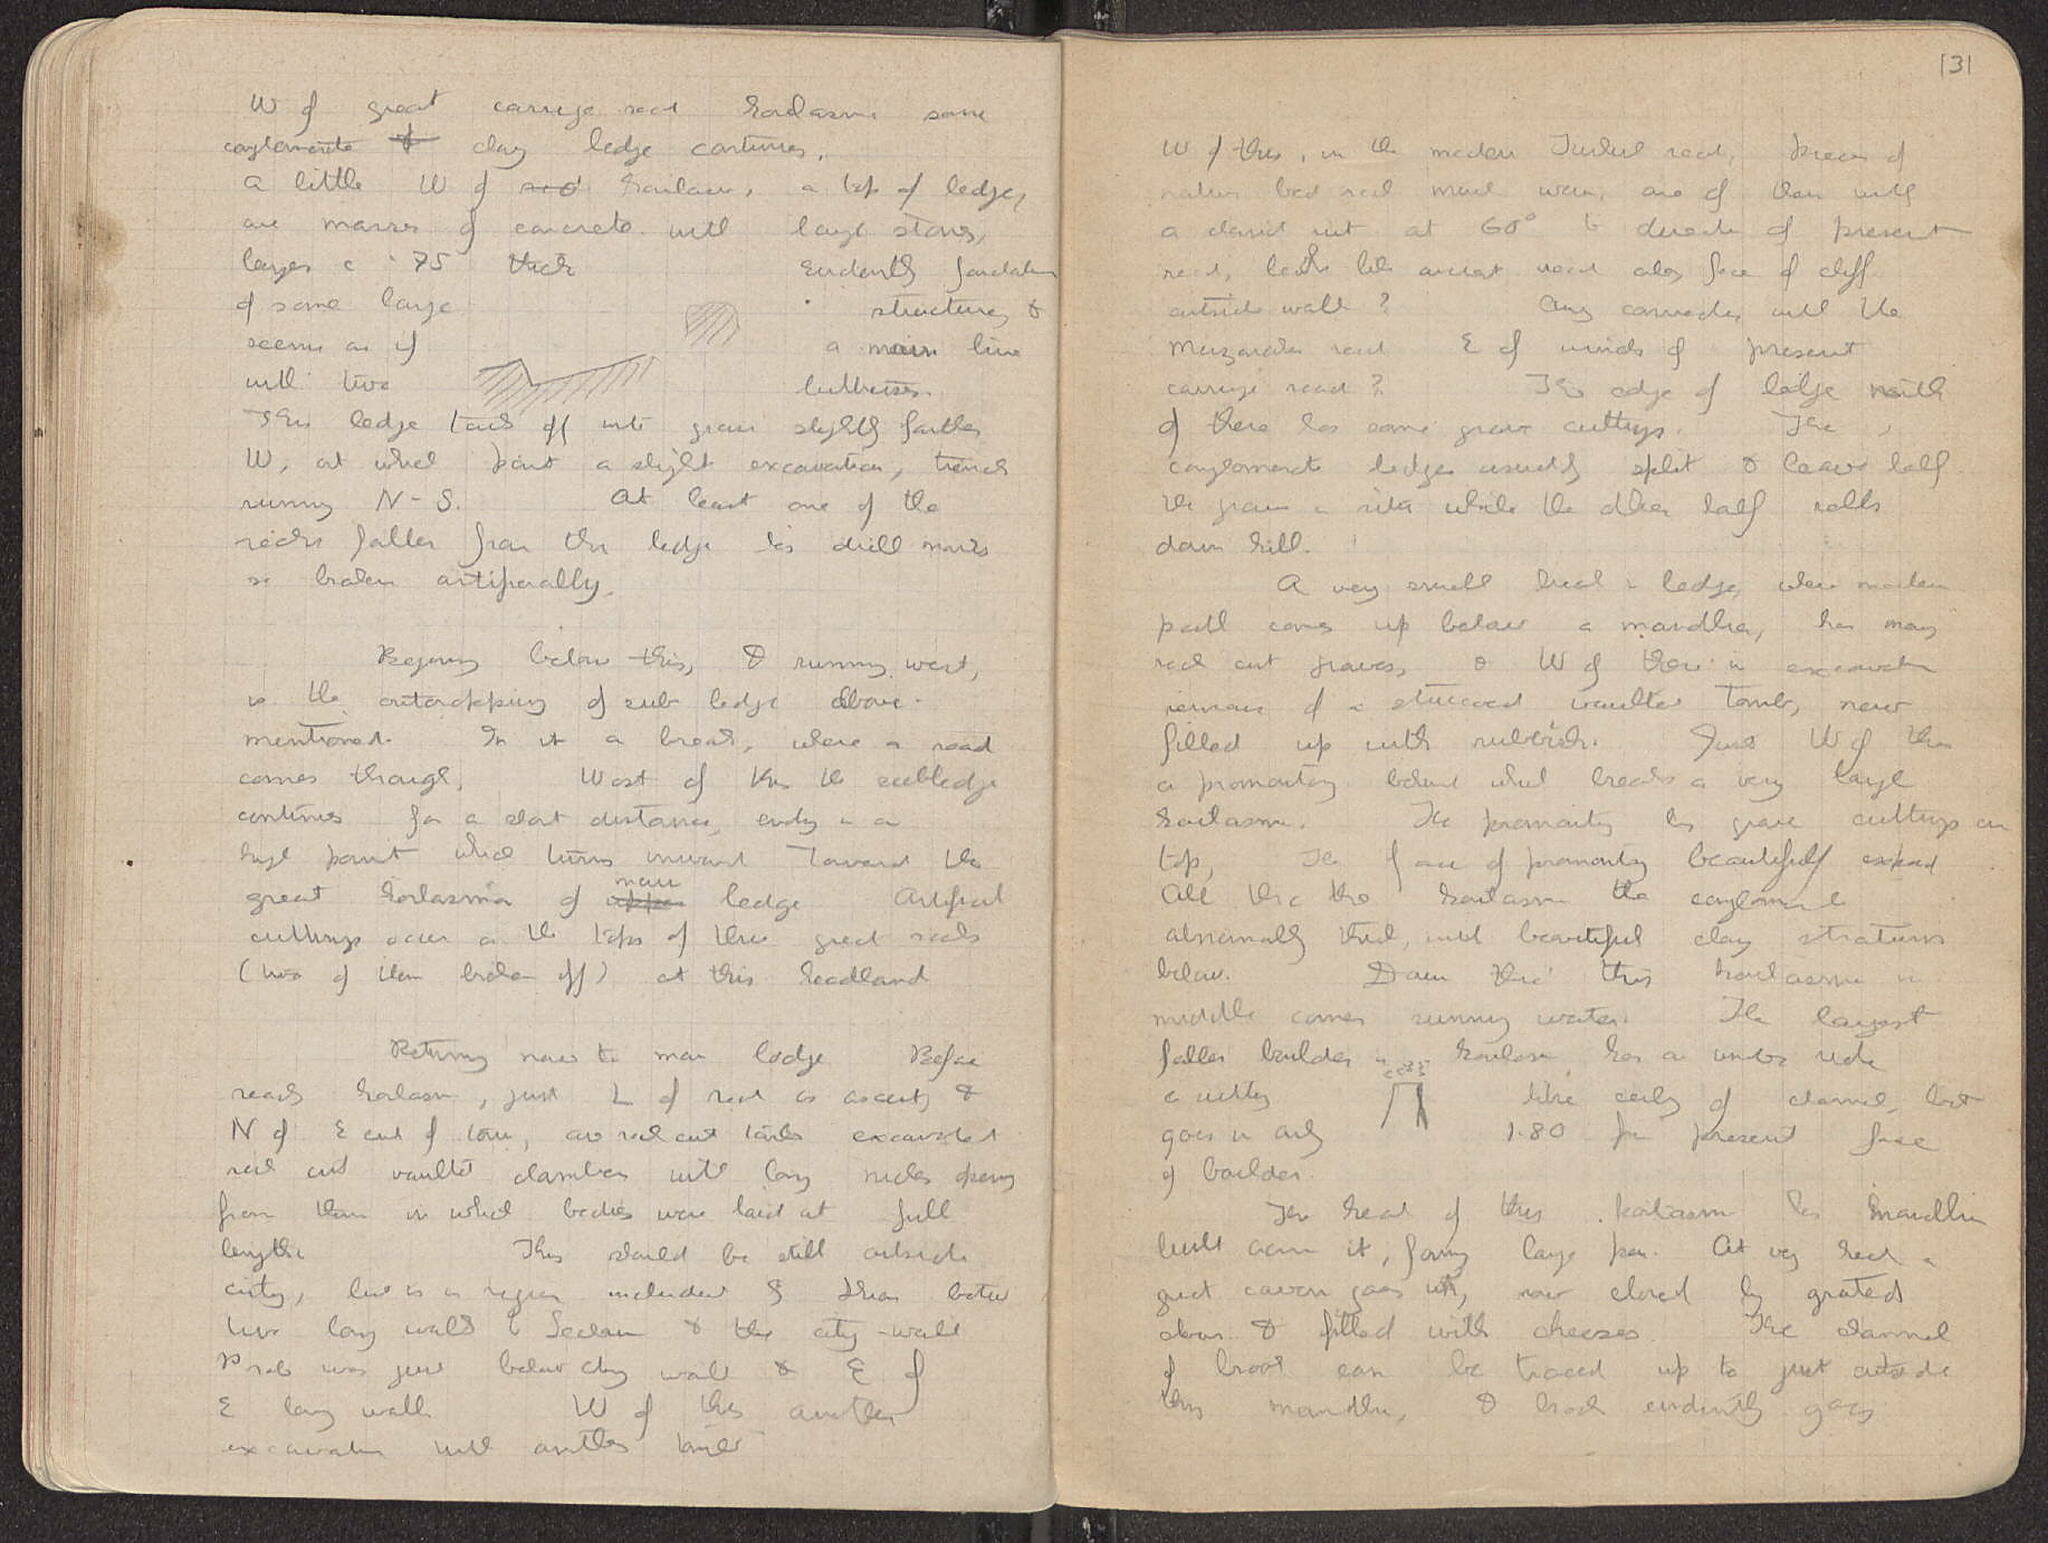 W of great carriage road horlasma same
conglomerate & clay ledge continues.
A little W of road horlasma, a top of ledge,
are masses of concrete with large stones,
larges c .75 thick evidently foundation
of some large structure, &
seems as if a main line
with two buttresses.
This ledge tails off into grass slightly farther
W, at which point a slight excavation, trench
running N-S. At least one of the
rocks fallen from this ledge has drill marks
so broken artificially.
Begining below this, & running west,
is the outcropping of sub ledge above-
mentioned. In it a break, where a road
comes through. West of this the subledge
continues for a short distance, ending in a
high point which turns inward toward the
great horlasma of upper main ledge Artificial
cuttings occur on the tops of three great rocks
(two of them broken off) at this headland
Returning now to main ledge Before
reach horlasma, just L of road as ascends &
N of E end of town, are rock cut tombs excavated
rock cut vaulted chambers with long niches opening
from them in which bodies were laid at full
length. This should be still outside
city, but is in region included by them between
two long walls to Lechaeum & the city-wall
Prob was just below city wall & E of
E long wall. W of this another
excavation with another tomb
131
W of this, in the modern road, pieces of
native bed rock much worn, one of them with
a distinct rut at 60° to direction of present
road, looks like ancient road along face of cliff
outside wall? Any connection with the
road E of winds of present
carriage road? The edge of ledge north
of these has some grave cuttings. The
conglomerate ledges usually split & leave half
the grave in situ while the other half rolls
down hill.
A very small break in ledge, where modern
path comes up below a mandra, has many
rock cut graves, & W of these is excavation
remains of a stuccoed vaulted tomb, now
filled up with rubbish. Just W of this
a promontory behind which breaks a very large
horlasma. The promontory has grave cuttings on
top, The face of promontory beautifully exposed
All thro the horlasma the conglomerate
abnormally thick, with beautiful clay stratum
below. Down thro' this horlasma in
middle comes running water. The largest
fallen boulder in horlasma has on under side
a cutting like ceiling of channel, but
goes in only 1.80 from present face
of boulder.
The head of this horlasma has mandra
built across it, forming large pen. At very head a
great cavern goes in, now closed by grated
doors & filled with cheeses. The channel
of brook can be traced up to just outside
this mandra, & brook evidently goes